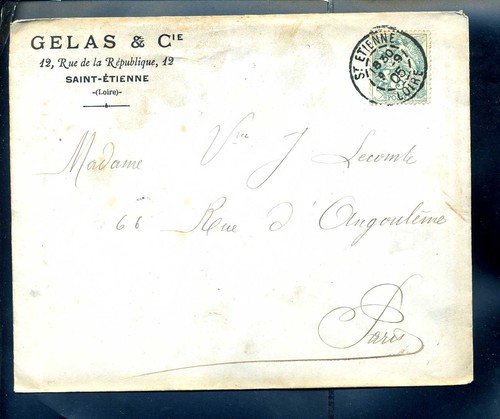 GELAS & CIE
12, Rue de la République, 12
SAINT-ÉTIENNE
-(Loire)-
ST ETIENNE
LOIRE
Madame Vve J Lecomte
66 Rue d'Angoulême
Paris